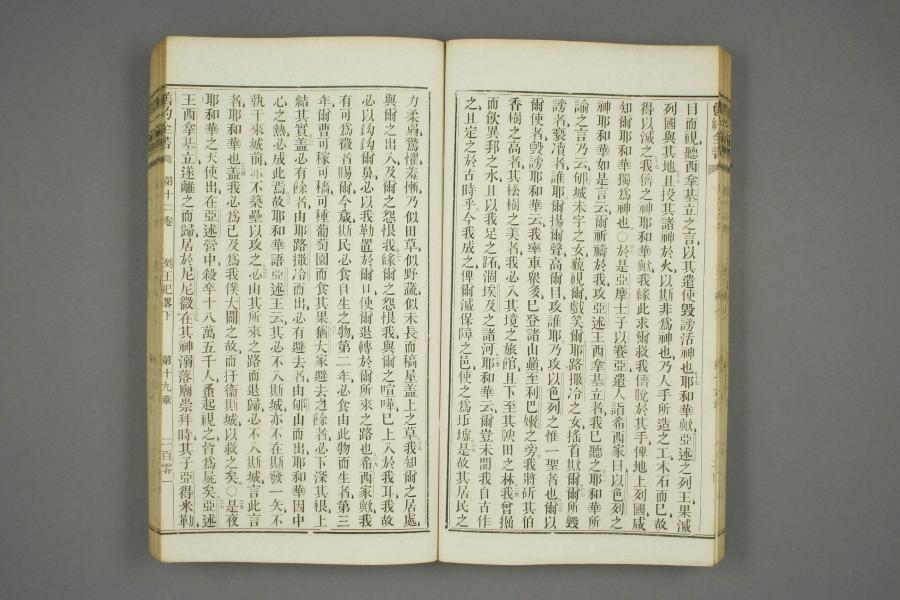 目而視聽西拿基立之言以其遣使毀謗活神也耶和華歟亞述之列王果滅
列國與其地且投其諸神於火以斯非爲神也乃人手所造之工木石而已故
得以滅之我儕之神耶和華歟我緣此求爾救我儕脫於其手俾地上列國咸
知爾耶和華獨爲神也○於是亞摩士子以賽亞遣人詣希西家曰以色列之
神耶和華如是言云爾祈禱於我攻亞述王西拿基立者我已聽之耶和華所
諭之言乃云郇城未字之女藐視爾戲笑爾耶路撒冷之女搖首歟爾爾所毀
謗者褻瀆者誰耶爾揚爾聲高爾目攻誰耶乃攻以色列之惟一聖者也爾以
爾使者毀謗耶和華云我率車衆多已登諸山巔至利巴嫩之旁我將斫其伯
香樹之高者其松樹之美者我必入其境之旅館且下至其腴田之林我曾掘
而飲異邦之水且以我足之跖涸埃及之諸河耶和華云爾豈未聞我自古作
之且定之於古時乎今我成之俾爾滅保障之邑使之爲墟是故其居民之
力柔弱驚懼羞慚乃似田草似野蔬似未長而槁屋蓋上之草我知爾之居處
與爾之出入及爾之怨恨我緣爾之怨恨我與爾之喧嘩已上入於我耳我故
必以鈎鈎爾鼻必以我勒置於爾口使爾退轉於爾所來之路也希西家歟我
有可爲徵者賜爾今歲斯民必食自生之物第二年必食由此物而生者第三
年爾曹可稼可穡可種葡萄園而食其果猶大家避去之餘者必下深其根上
結其實蓋必有餘者由耶路撒冷而出必有避去者由郇山而出耶和華因中
心之熱必成此焉故耶和華語亞述王云其必不入斯城亦不在斯發一矢不
執干來城前亦不築壘以攻之必由其所來之路而退歸必不入斯城言此言
者耶和華也蓋我必爲己及爲我僕大闢之故而扞衞斯城以救之矣○是夜
耶和華之天使出在亞述營中殺卒十八萬五千人蚤起視之皆爲屍矣亞述
王西拿基立遂離之而歸居於尼尼微在其神溺落廟崇拜時其子亞得米勒
舊約全書 第十二卷 列王紀畧下 第十九章 二百零一